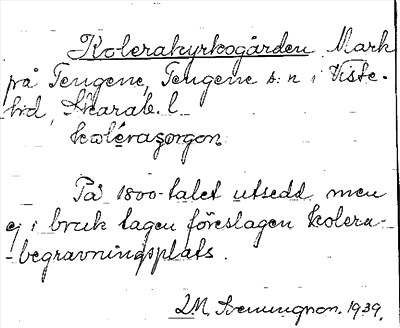 Kolerakyrkogården Mark
på Tengene, Tengene s:n i Viste-
hd, Skarab. l.
På 1800-talet utsedd, men
ej i bruk tagen föreslagen kolera-
-begravningsplats.
1939.